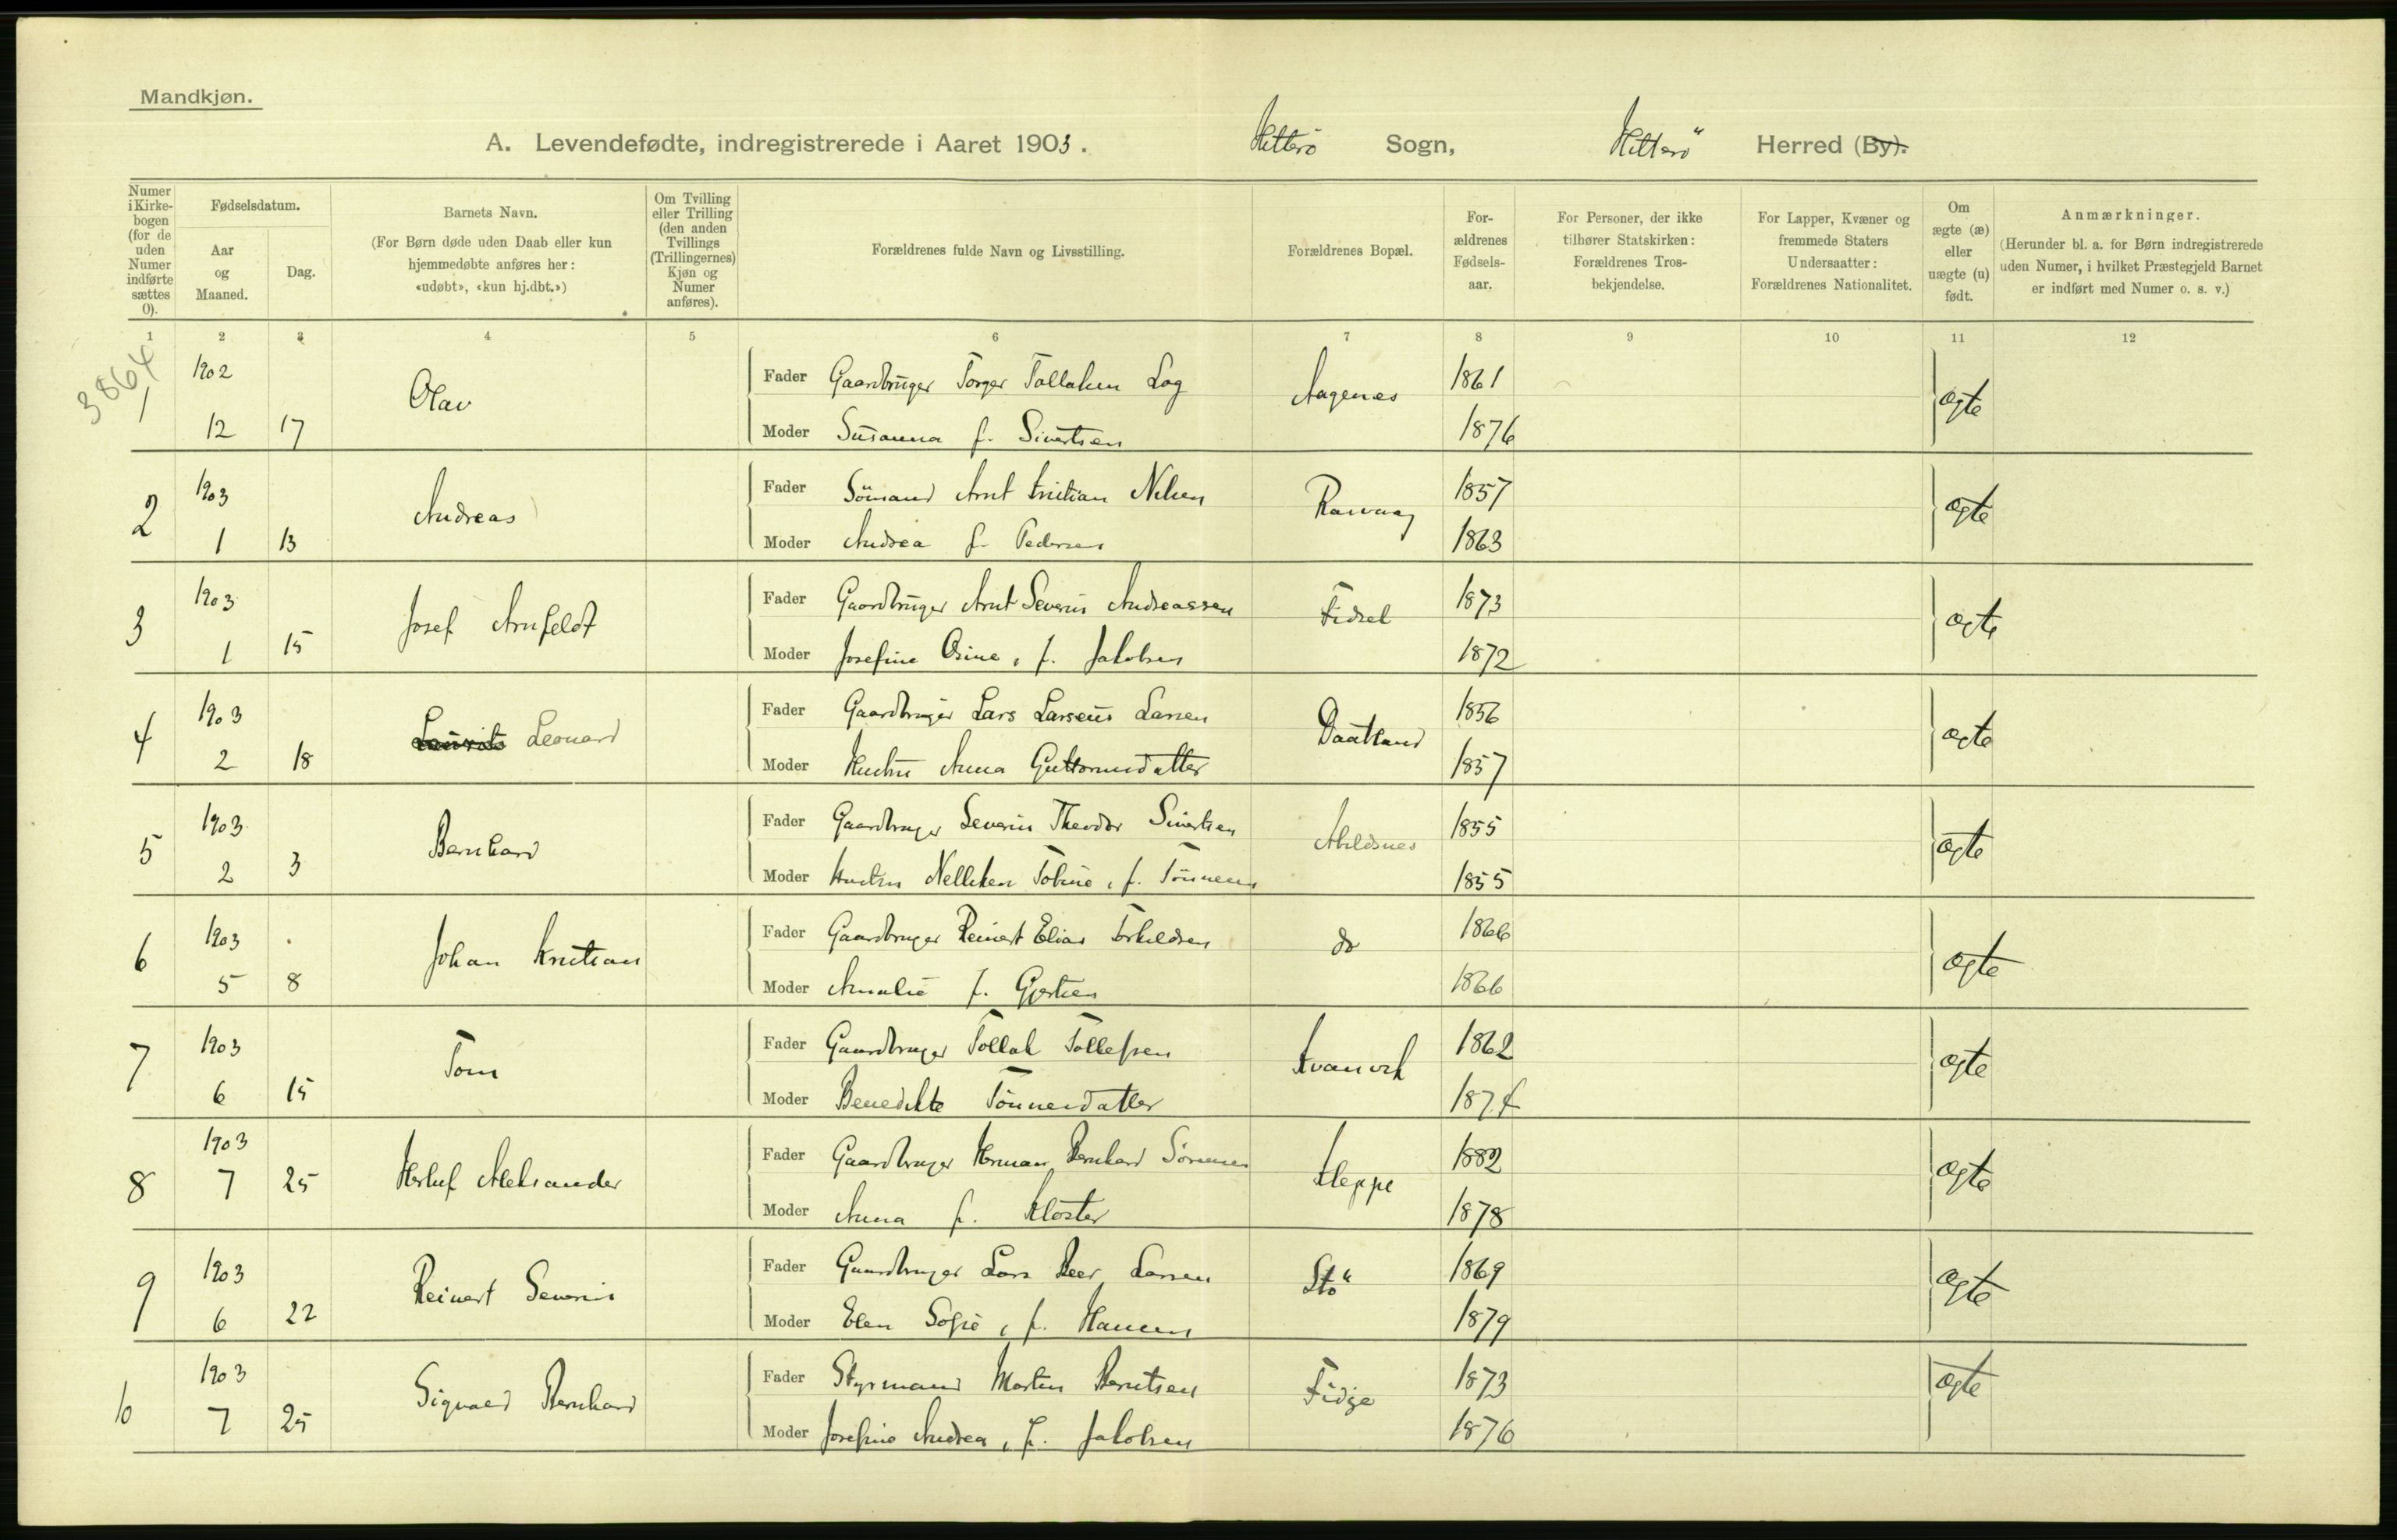 Mandkjøn.
A. Levendefødte, indregistrerede i Aaret 1903. Hitterö Sogn, Hitterö Herred (By).
Numer i Kirkebogen (for de uden Numer indførte sættes 0).
Fødselsdatum.
Aar og Maaned.
Dag.
Barnets Navn.
(For Børn døde uden Daab eller kun hjemmedøbte anføres her: «udøbt», «kun hj.dbt.»)
Om Tvilling eller Trilling (den anden Tvillings (Trillingernes) Kjøn og Numer anføres).
Forældrenes fulde Navn og Livsstilling.
Forældrenes Bopæl.
Forældrenes Fødselsaar.
For Personer, der ikke tilhører Statskirken: Forældrenes Trosbekjendelse.
For Lapper, Kvæner og fremmede Staters Undersaatter: Forældrenes Nationalitet.
Om ægte (æ) eller uægte (u) født.
Anmærkninger.
(Herunder bl. a. for Børn indregistrerede uden Numer, i hvilket Præstegjeld Barnet er indført med Numer o. s. v.)
1 2 3 4 5 6 7 8 9 10 11 12
3864
1 1902 12 17 Olav Fader Gaardbruger Torger Tollaksen Log Aagenes 1861 ægte
Moder Susanna f. Sivertsen 1876
2 1903 1 13 Andreas Fader Sömand Arnt Kristian Nilsen Rasvaag 1857 ægte
Moder Andrea f. Pedersen 1863
3 1903 1 15 Josef Arnfeldt Fader Gaardbruger Arnt Severin Andreassen Fidsel 1873 ægte
Moder Josefine Osine, f. Jakobsen 1872
4 1903 2 18 Laurits Leonard Fader Gaardbruger Lars Larsenus Larsen Daatland 1856 ægte
Moder Hustru Anna Guttormsdatter 1857
5 1903 2 3 Bernhard Fader Gaardbruger Severin Theodor Sivertsen Abelsnes 1855 ægte
Moder Hustru Nelliken Tobine, f. Tönnesen 1855
6 1903 5 8 Johan Kristian Fader Gaardbruger Reinert Elias Torkildsen do 1866 ægte
Moder Amalie f. Gjertsen 1866
7 1903 6 15 Tom Fader Gaardbruger Tollak Tollefsen Kvanvik 1862 ægte
Moder Benedikte Tönnesdatter 1874
8 1903 7 25 Herluf Aleksander Fader Gaardbruger Herman Bernhard Sörensen Kleppe 1882 ægte
Moder Anna f. Kloster 1878
9 1903 6 22 Reinert Severin Fader Gaardbruger Lars Peer Larsen Stö 1869 ægte
Moder Elen Sofie, f. Hansen 1879
10 1903 7 25 Sigvald Bernhard Fader Styrmand Morten Berntsen Fidje 1873 ægte
Moder Josefine Andrea, f. Jakobsen 1876